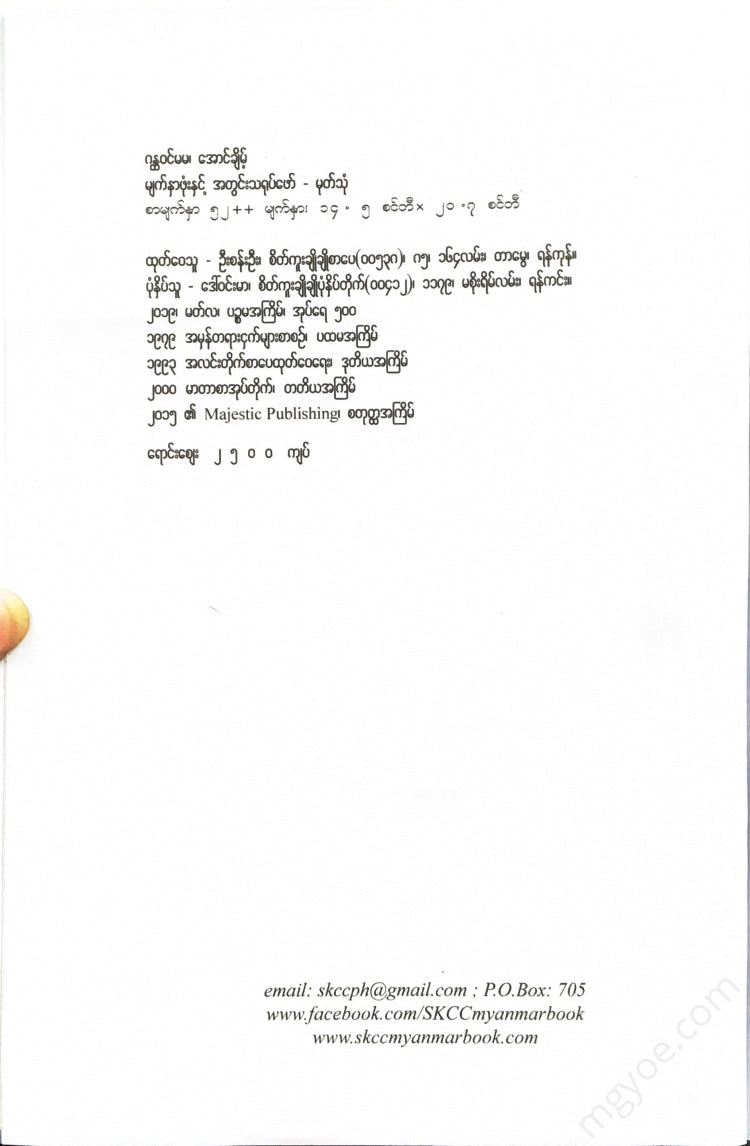 ဂန္ထဝင်မမ၊ အောင်ချိမ့်
မျက်နှာဖုံးနှင့် အတွင်းသရုပ်ဖော် - မုတ်သုံ
စာမျက်နှာ ၅၂++ မျက်နှာ၊ ၁၄ . ၅ စင်တီ× ၂၁ .၇ စင်တီ
ထုတ်ဝေသူ - ဦးစန်းဦး၊ စိတ်ကူးချိုချိုစာပေ(၀၀၅၃၈)၊ ဂ၅၊ ၁၆၄လမ်း၊ တာမွေ၊ ရန်ကုန်။
ပုံနှိပ်သူ - ဒေါ်ဝင်းမာ၊ စိတ်ကူးချိုချိုပုံနှိပ်တိုက်(၀၀၄၁၂)၊ ၁၁၇၉၊ မစိုးရိမ်လမ်း၊ ရန်ကင်း။
၂၀၁၉၊ မတ်လ၊ ပဉ္စမအကြိမ်၊ အုပ်ရေ ၅၀၀
၁၉၇၉ အမှန်တရားငှက်များစာစဉ်၊ ပထမအကြိမ်
၁၉၉၃ အလင်းတိုက်စာပေထုတ်ဝေရေး၊ ဒုတိယအကြိမ်
၂၀၀၀ မာတာစာအုပ်တိုက်၊ တတိယအကြိမ်
၂၀၁၅ ၏ Majestic Publishing၊ စတုတ္ထအကြိမ်
ရောင်းဈေး ၂ ၅ ၀ ၀ ကျပ်
email: skccph@gmail.com ; P.O.Box: 705
www.facebook.com/SKCCmyanmarbook
www.skccmyanmarbook.com
mgyoe.com